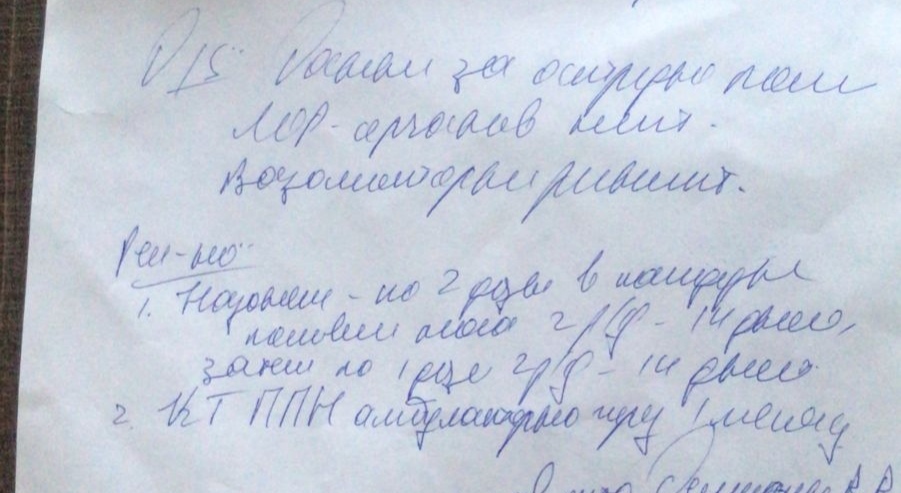 DS: Данных за острую пат.
ЛОР-органов нет.
Вазомоторный ринит.
Рек-но:
1. Назонекс - по 2 дозы в каждую
половину носа 2 р/д - 14 дней,
затем по 1 дозе 2 р/д - 14 дней
2. КТ ППН амбулаторно через 1 месяц